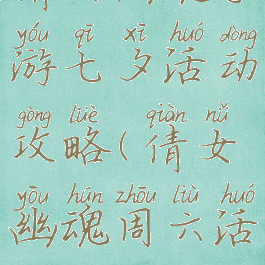 yóu qī xī huó dòng
游七夕活动
gōng lüè ( qiàn nǚ
攻略(倩女
yōu hún zhōu liù huó
幽魂周六活